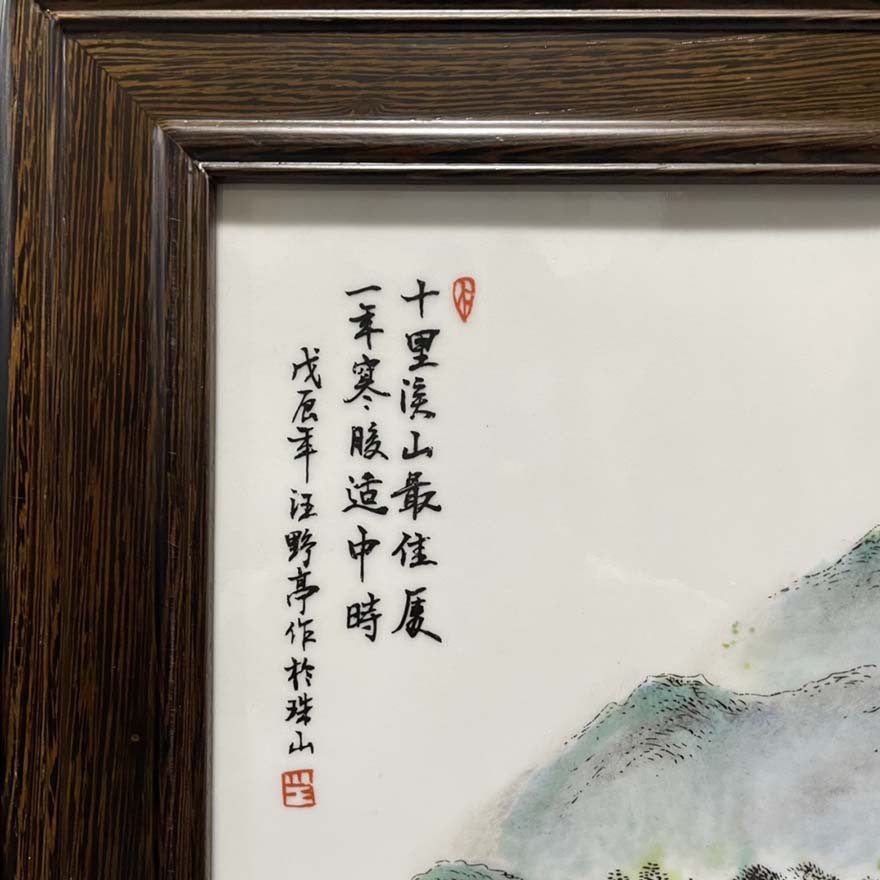 十里溪山最佳處
一年寒暖適中時
戊辰年汪野亭作於珠山